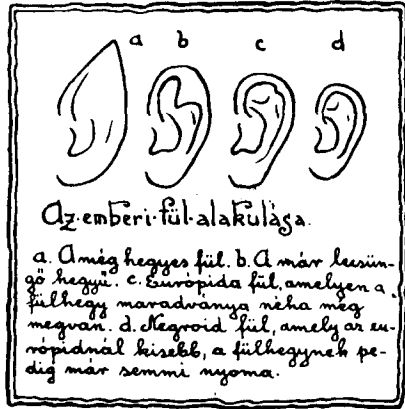 a b c d
Az·emberi·fül·alakulása.
a. A még hegyes fül. b. A már lecsün-
gő hegyű. c. Európida fül, amelyen a
fülhegy maradványa néha még
megvan. d. Negroid fül, amely az eu-
rópidnál kisebb, a fülhegynek pe-
dig már semmi nyoma.